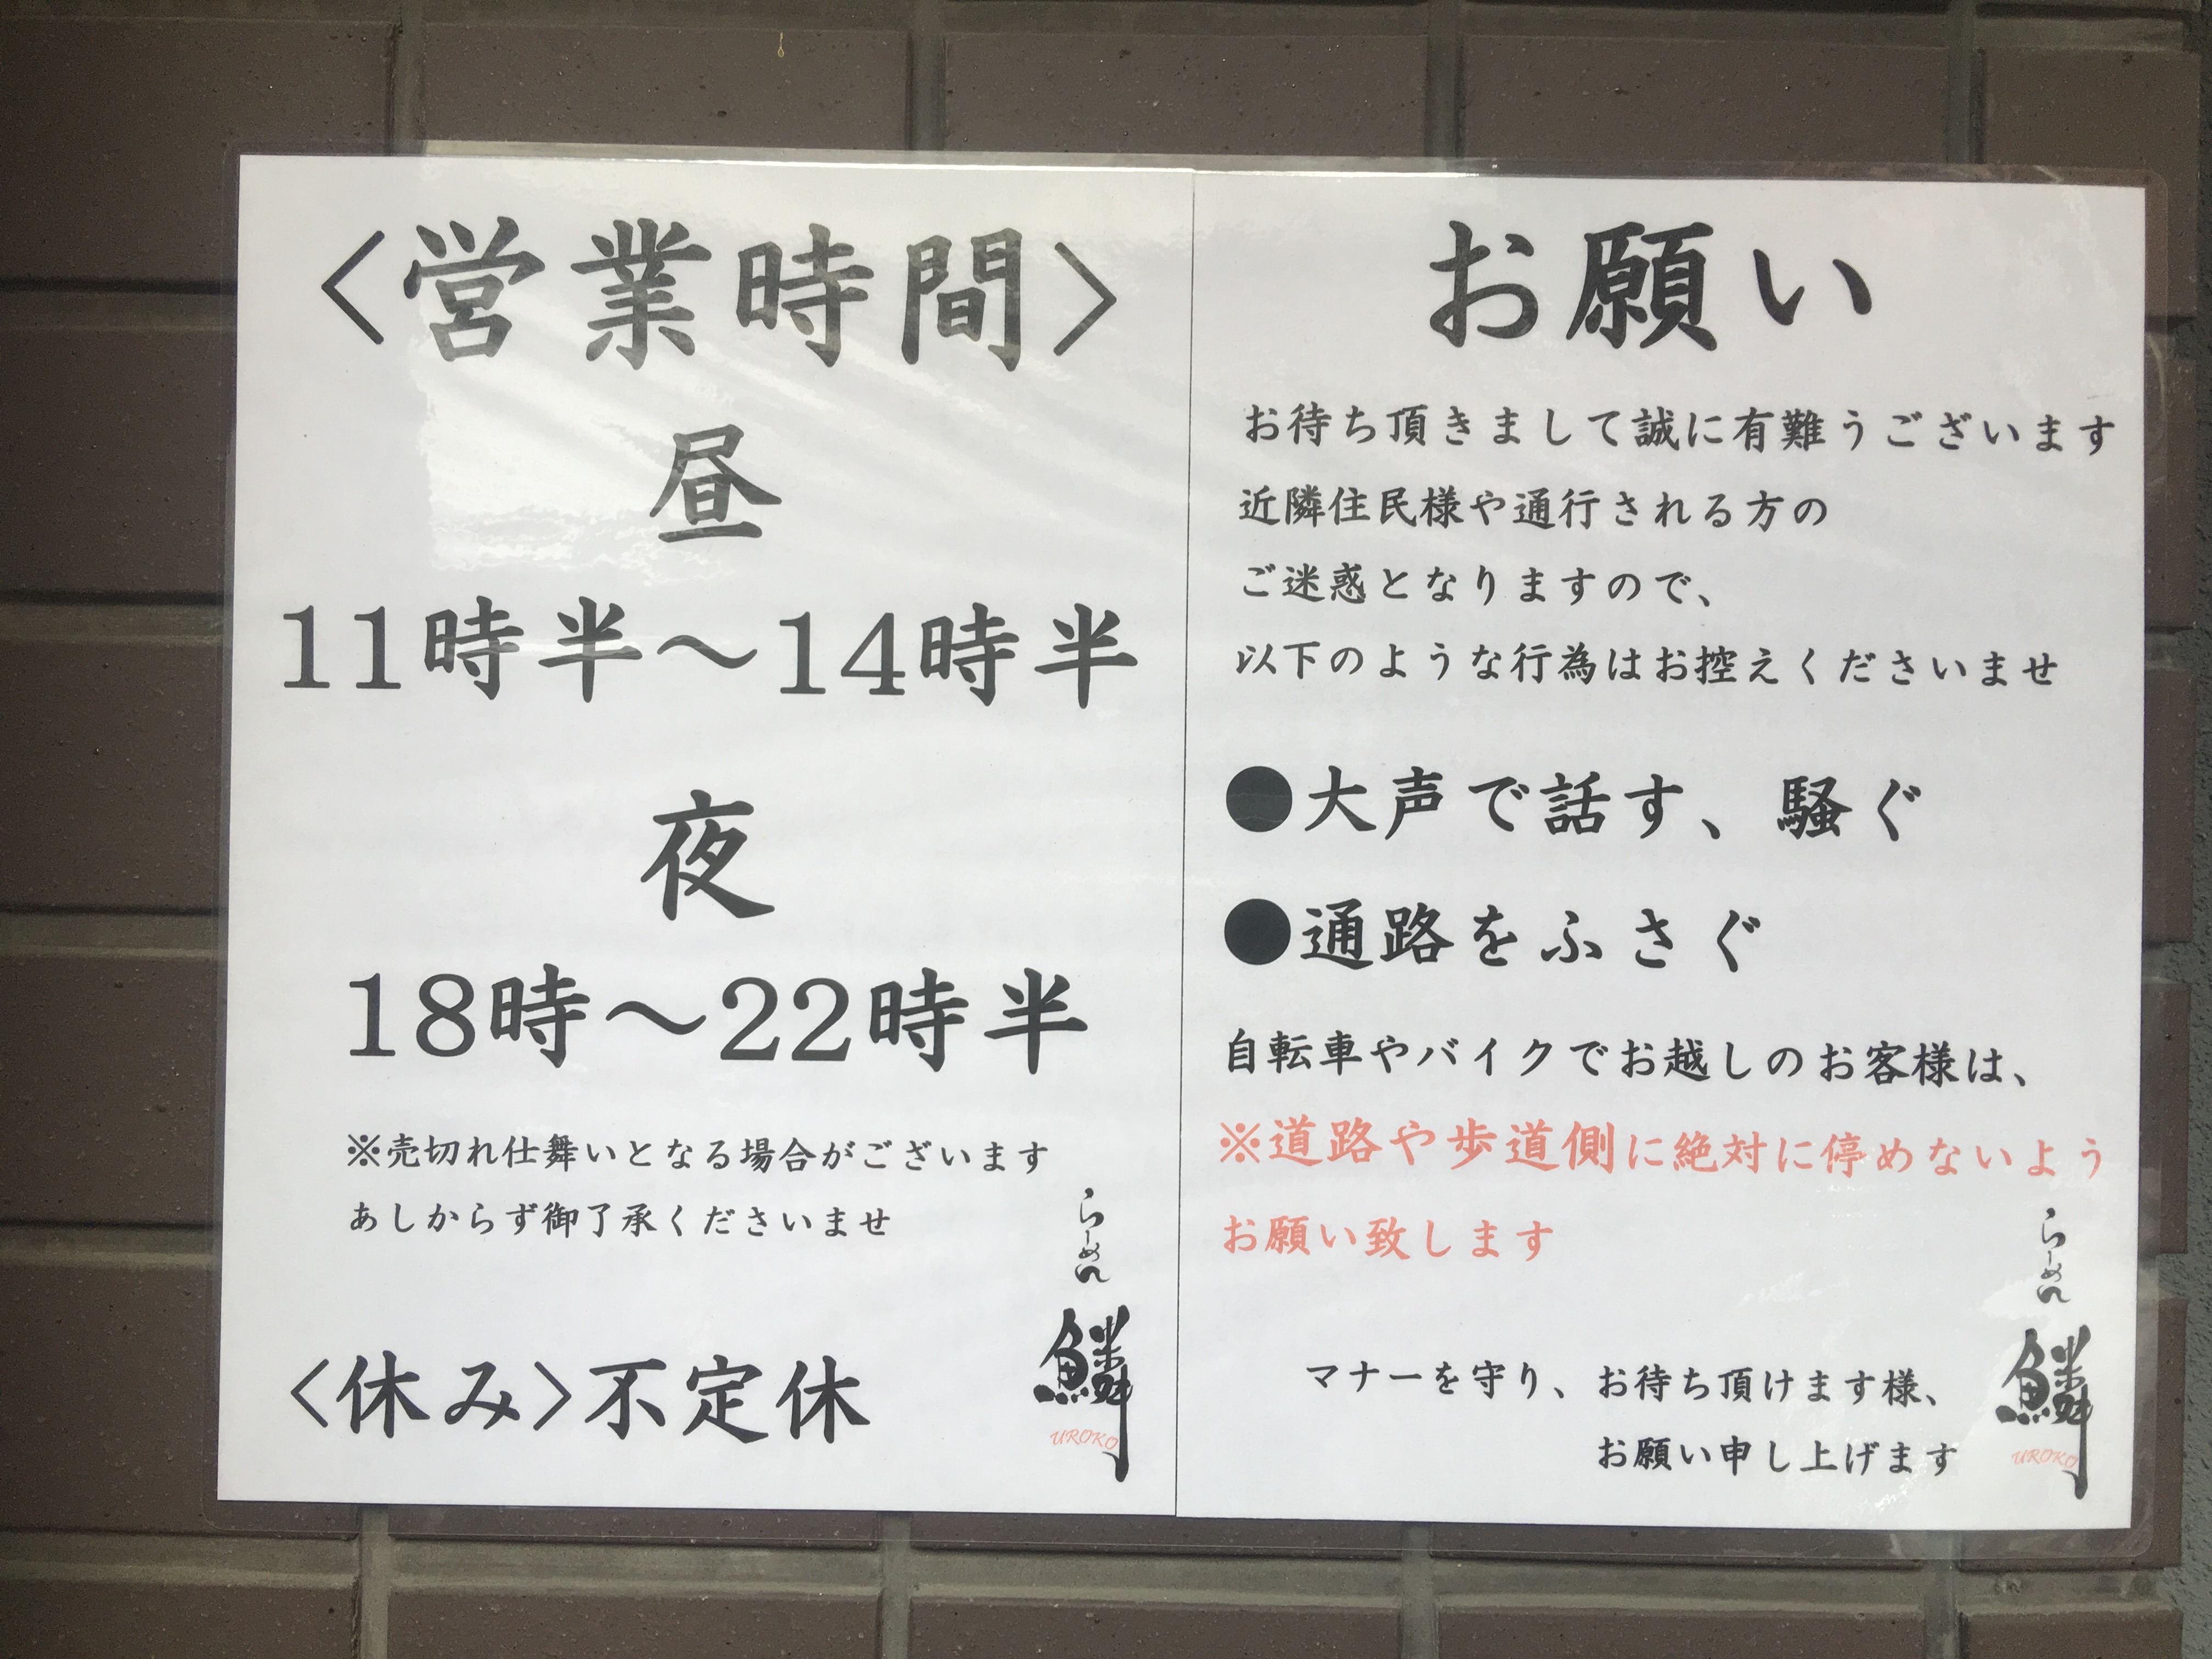 〈営業時間〉
昼
11時半〜14時半
夜
18時〜22時半
※売切れ仕舞いとなる場合がございます
あしからず御了承くださいませ
〈休み〉不定休
らーめん
鱗
UROKO
お願い
お待ち頂きまして誠に有難うございます
近隣住民様や通行される方の
ご迷惑となりますので、
以下のような行為はお控えくださいませ
●大声で話す、騒ぐ
●通路をふさぐ
自転車やバイクでお越しのお客様は、
※道路や歩道側に絶対に停めないよう
お願い致します
マナーを守り、お待ち頂けます様、
お願い申し上げます
らーめん
鱗
UROKO